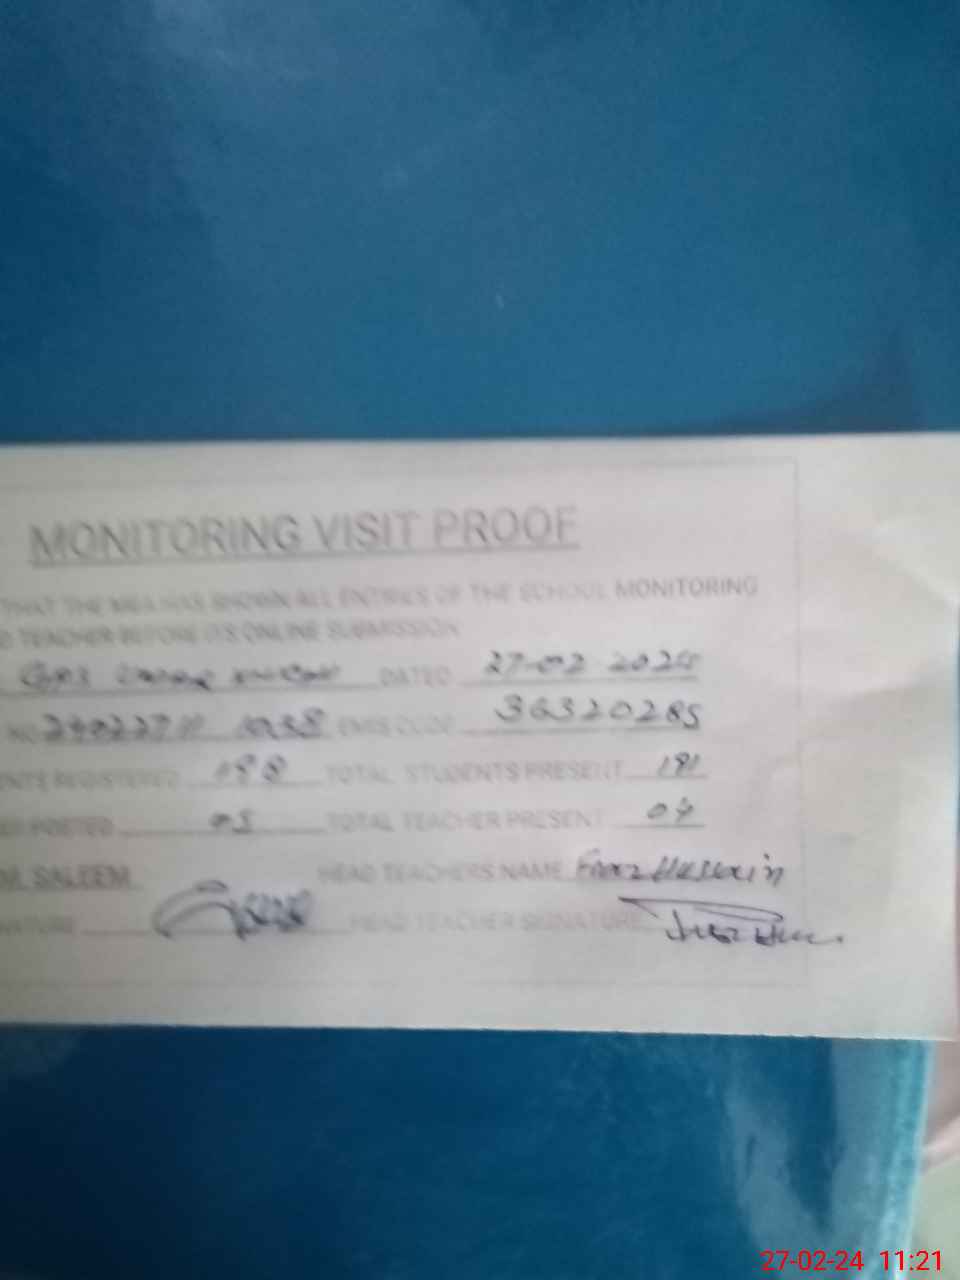 MONITORING VISIT PROOF
THAT THE MEA HAS SHOWN ALL ENTRIES OF THE SCHOOL MONITORING
TEACHER BEFORE ITS ONLINE SUBMISSION
DATED 27-02-2024
EMIS CODE 36320285
REGISTERED 198 TOTAL STUDENTS PRESENT 181
POSTED 05 TOTAL TEACHER PRESENT 04
M. SALEEM HEAD TEACHERS NAME Hussain
HEAD TEACHER SIGNATURE
27-02-24 11:21